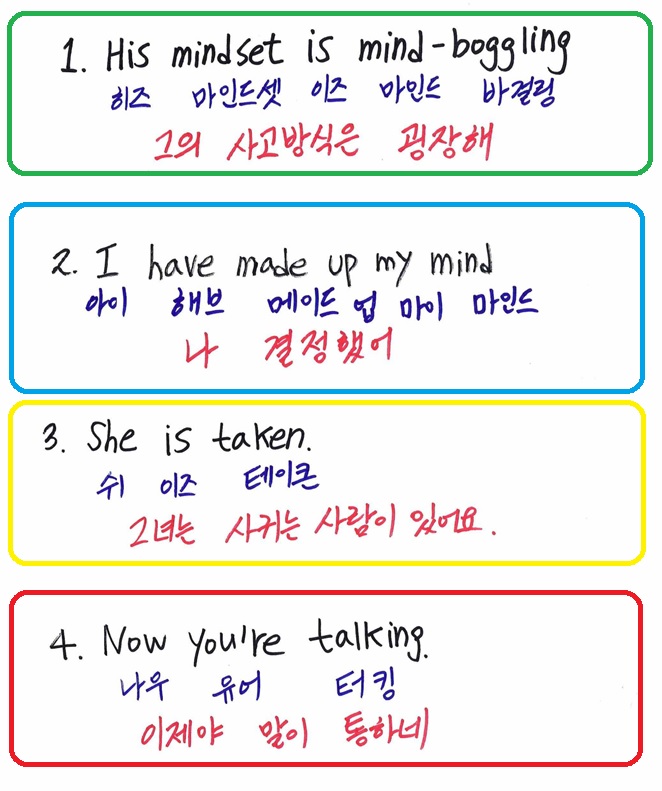 1. His mindset is mind-boggling
히즈 마인드셋 이즈 마인드 바걸링
그의 사고방식은 굉장해
2. I have made up my mind
아이 해브 메이드 업 마이 마인드
나 결정했어
3. She is taken.
쉬 이즈 테이큰
그녀는 사귀는 사람이 있어요.
4. Now you're talking.
나우 유어 터킹
이제야 말이 통하네